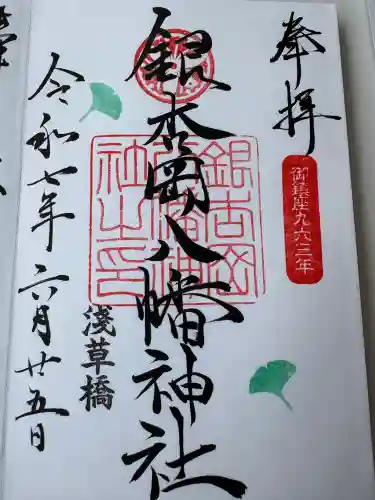 奉拝
御鎮座九六三年
銀杏岡八幡神社
浅草橋
令和七年六月廿五日